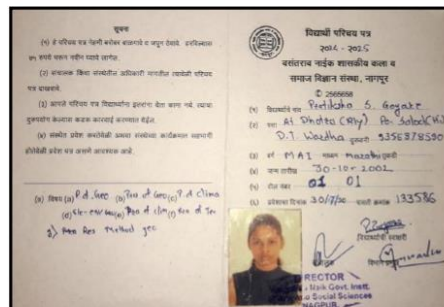 सूचना
(१) हे परिचय पत्र नेहमी बरोबर बाळगावे व जपून ठेवावे. हरविल्यास
रू. भरून नवीन घ्यावे लागेल.
(२) संचालक किंवा संस्थेतील अधिकारी मागतील त्यावेळी परिचय
पत्र दाखवावे.
(३) आपले परिचय पत्र विद्यार्थ्यांना इतरांना देता कामा नये. त्याचा
दुरूपयोग केल्यास कडक कारवाई करण्यात येईल.
(४) संस्थेत प्रवेश करतेवेळी अथवा संस्थेच्या कार्यक्रमात सहभागी
होतेवेळी प्रवेश पत्र असणे आवश्यक आहे.
(७) विषय (a) P. of. Geo (b) of Geo (c) P. of Clima
(d) (e) of (f) of
g) Res Method geo
विद्यार्थी परिचय पत्र
2024 - 2025
वसंतराव नाईक शासकीय कला व
समाज विज्ञान संस्था, नागपूर
✆ 2565658
(१) विद्यार्थ्याचे नांव S. Goyake
(२) पत्ता At Dhotra
D.T. Wardha दूरध्वनी
(३) वर्ग M A I माध्यम Marathi तुकडी
(४) जन्म तारीख 30-10-2002
(५) रोल नंबर 01 01
(६) प्रवेशाचा दिनांक पावती क्रमांक 133586
विद्यार्थ्याची स्वाक्षरी
DIRECTOR
Naik Govt. Instt.
Social Sciences
NAGPUR